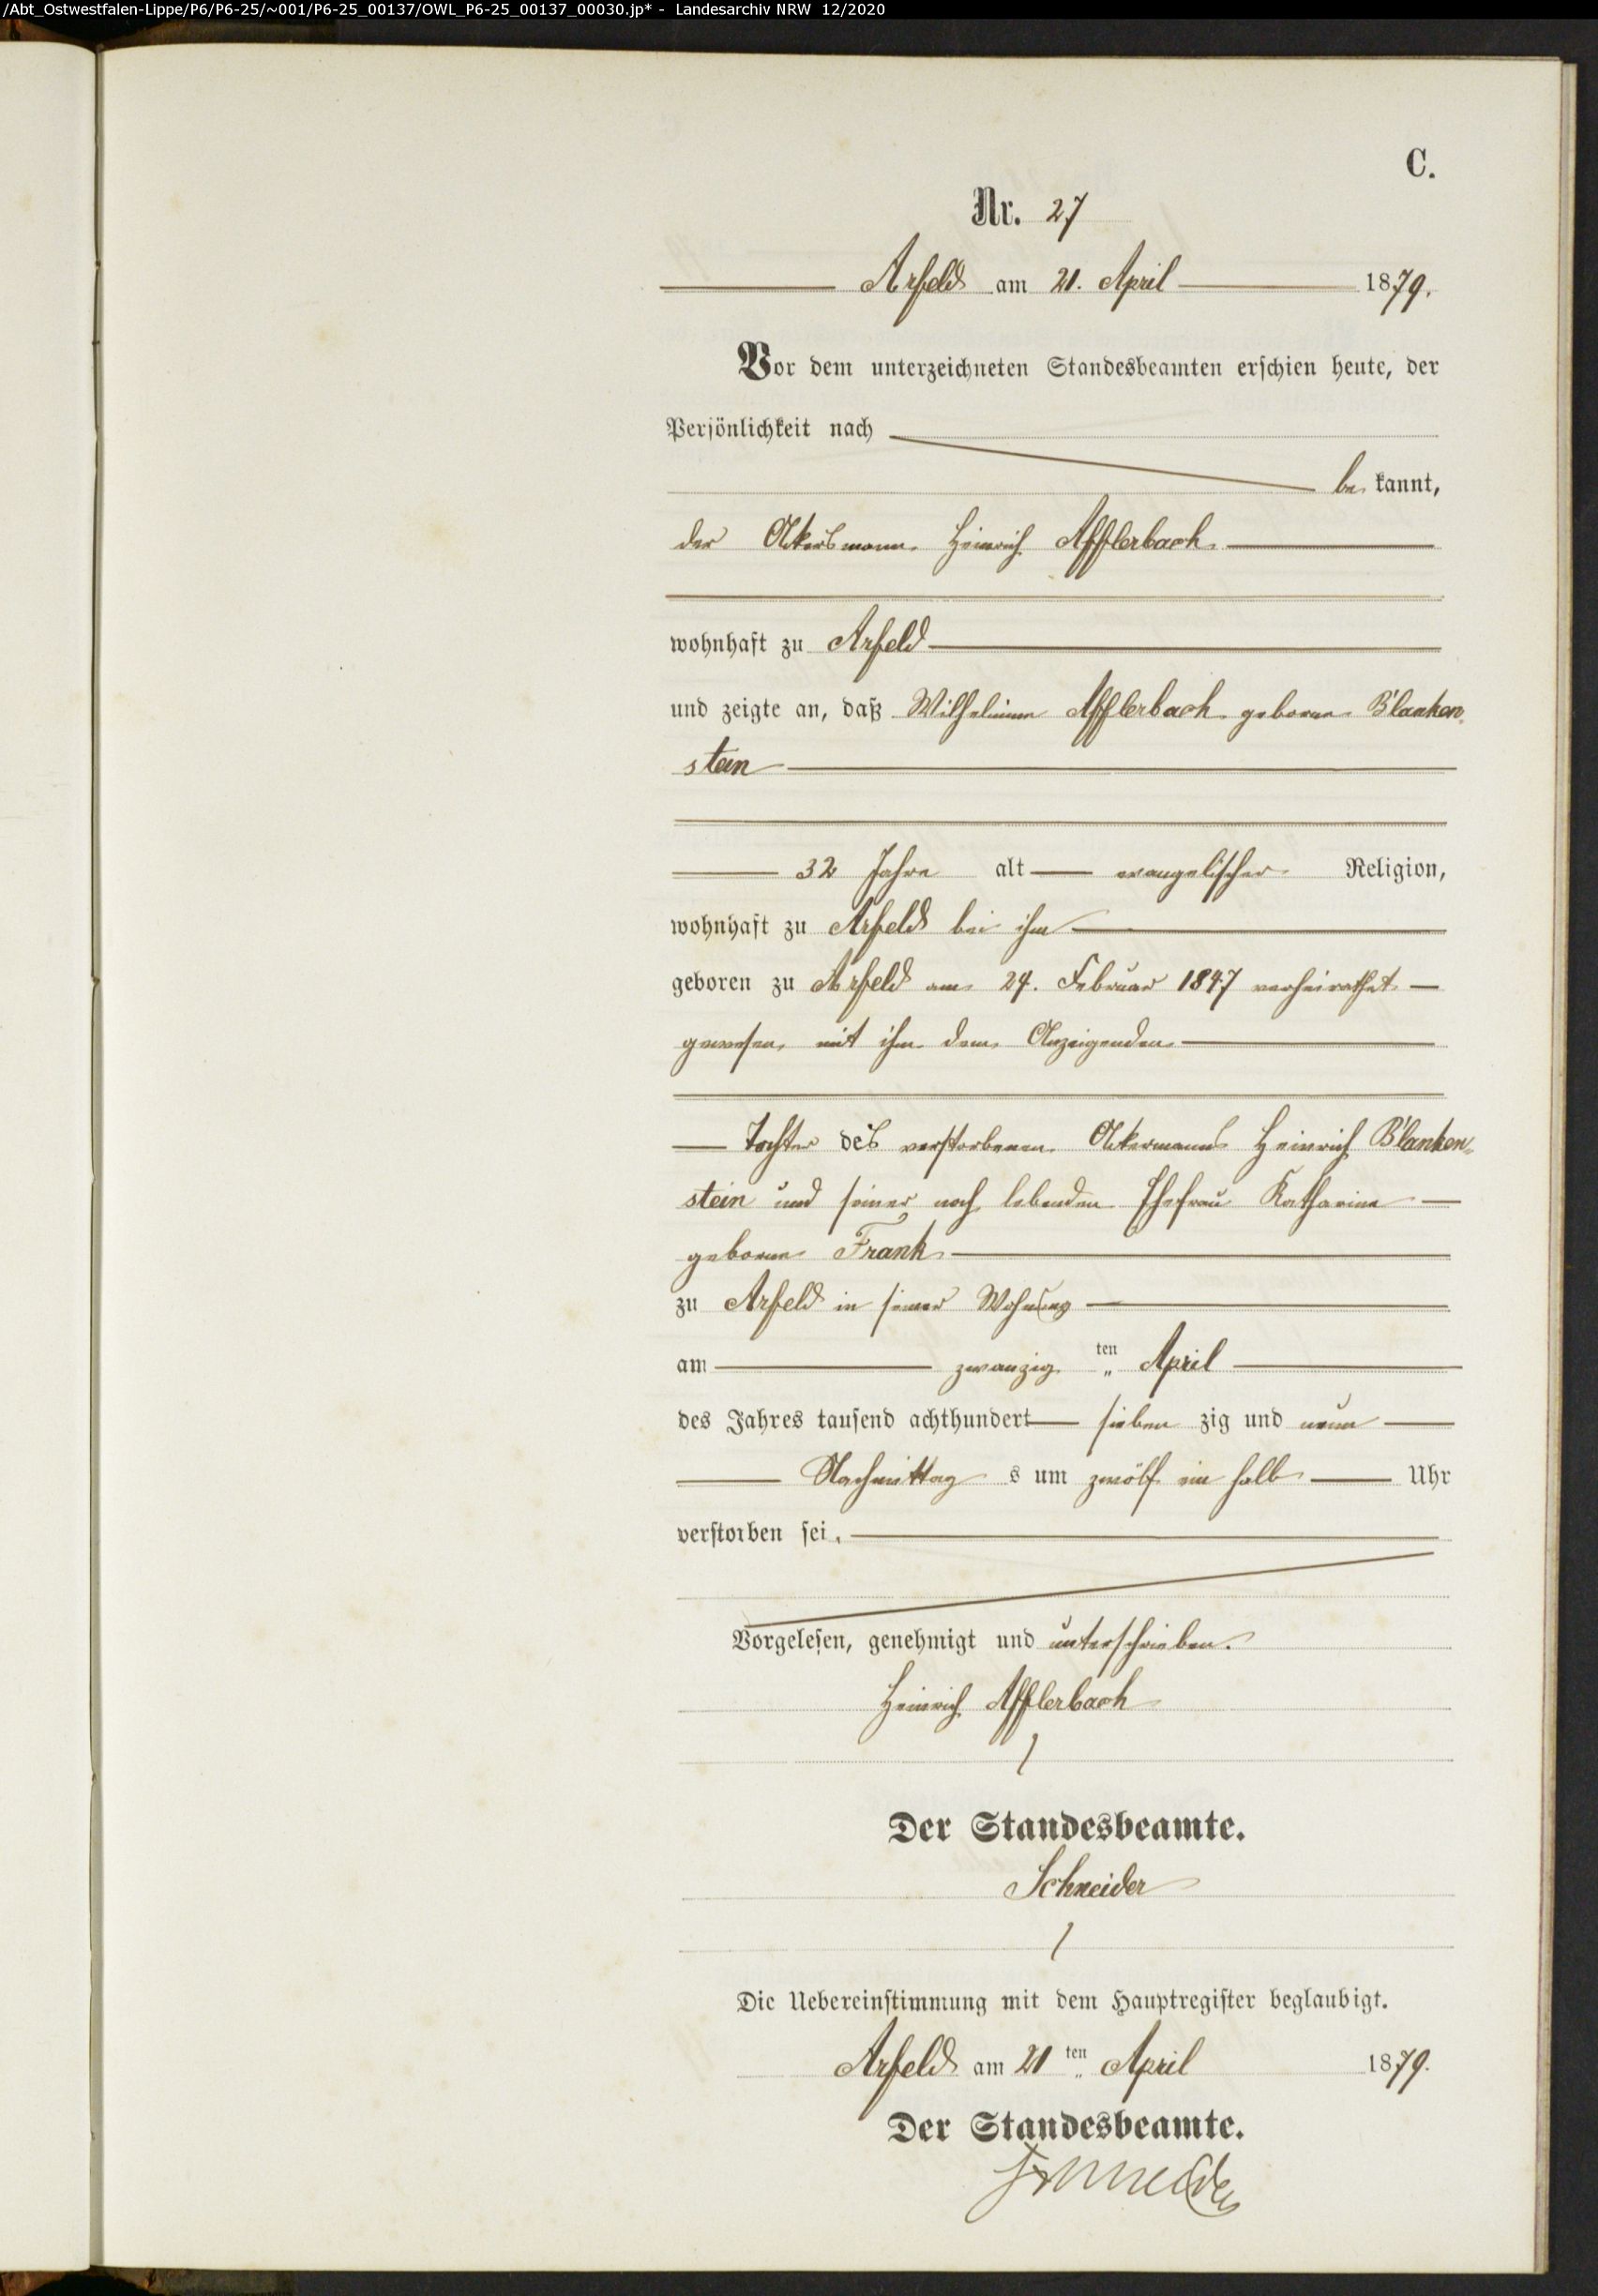 /Abt_Ostwestfalen-Lippe/P6/P6-25/~001/P6-25_00137/OWL_P6-25_00137_00030.jp* - Landesarchiv NRW 12/2020
C.
Nr. 27
Arfeld am 21. April 1879.
Vor dem unterzeichneten Standesbeamten erschien heute, der
Persönlichkeit nach
be kannt,
der Ackersmann Heinrich Afflerbach
wohnhaft zu Arfeld
und zeigte an, daß Wilhelmine Afflerbach geborne Blanken
stein
32 Jahre alt evangelischer Religion,
wohnhaft zu Arfeld bei ihm
geboren zu Arfeld am 24. Februar 1847 verheirathet
gewesen mit ihm dem Anzeigenden
Tochter des verstorbenen Ackermanns Heinrich Blanken
stein und seiner noch lebenden Ehefrau Katharine
geborne Frank
zu Arfeld in seiner Wohnung
am zwanzig ten April
des Jahres tausend achthundert sieben zig und neun
Nachmittag s um zwölf ein halb Uhr
verstorben sei.
Vorgelesen, genehmigt und unterschrieben.
Heinrich Afflerbach
Der Standesbeamte.
Schneider
Die Uebereinstimmung mit dem Hauptregister beglaubigt.
Arfeld am 21 ten April 1879.
Der Standesbeamte.
Schneider